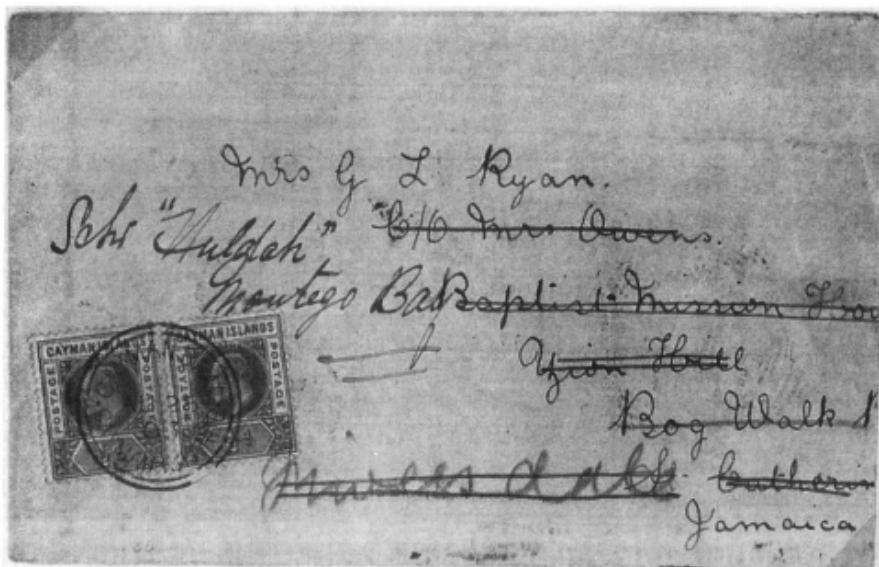 Mrs G L Ryan.
Schr "Huldah", C/o Mrs Owens.
Montego Bay Baptist Mission Hou
Zion Hill
Bog Walk P
St. Catherin
Jamaica
CAYMAN ISLANDS
POSTAGE
POSTAGE
CAYMAN ISLANDS
POSTAGE
POSTAGE